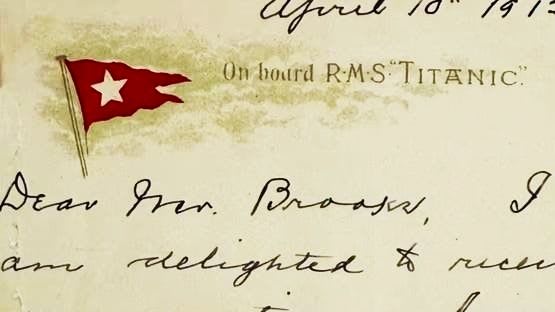 April 10th 191
On board R·M·S "TITANIC."
Dear Mr. Brooks, I
am delighted to recei